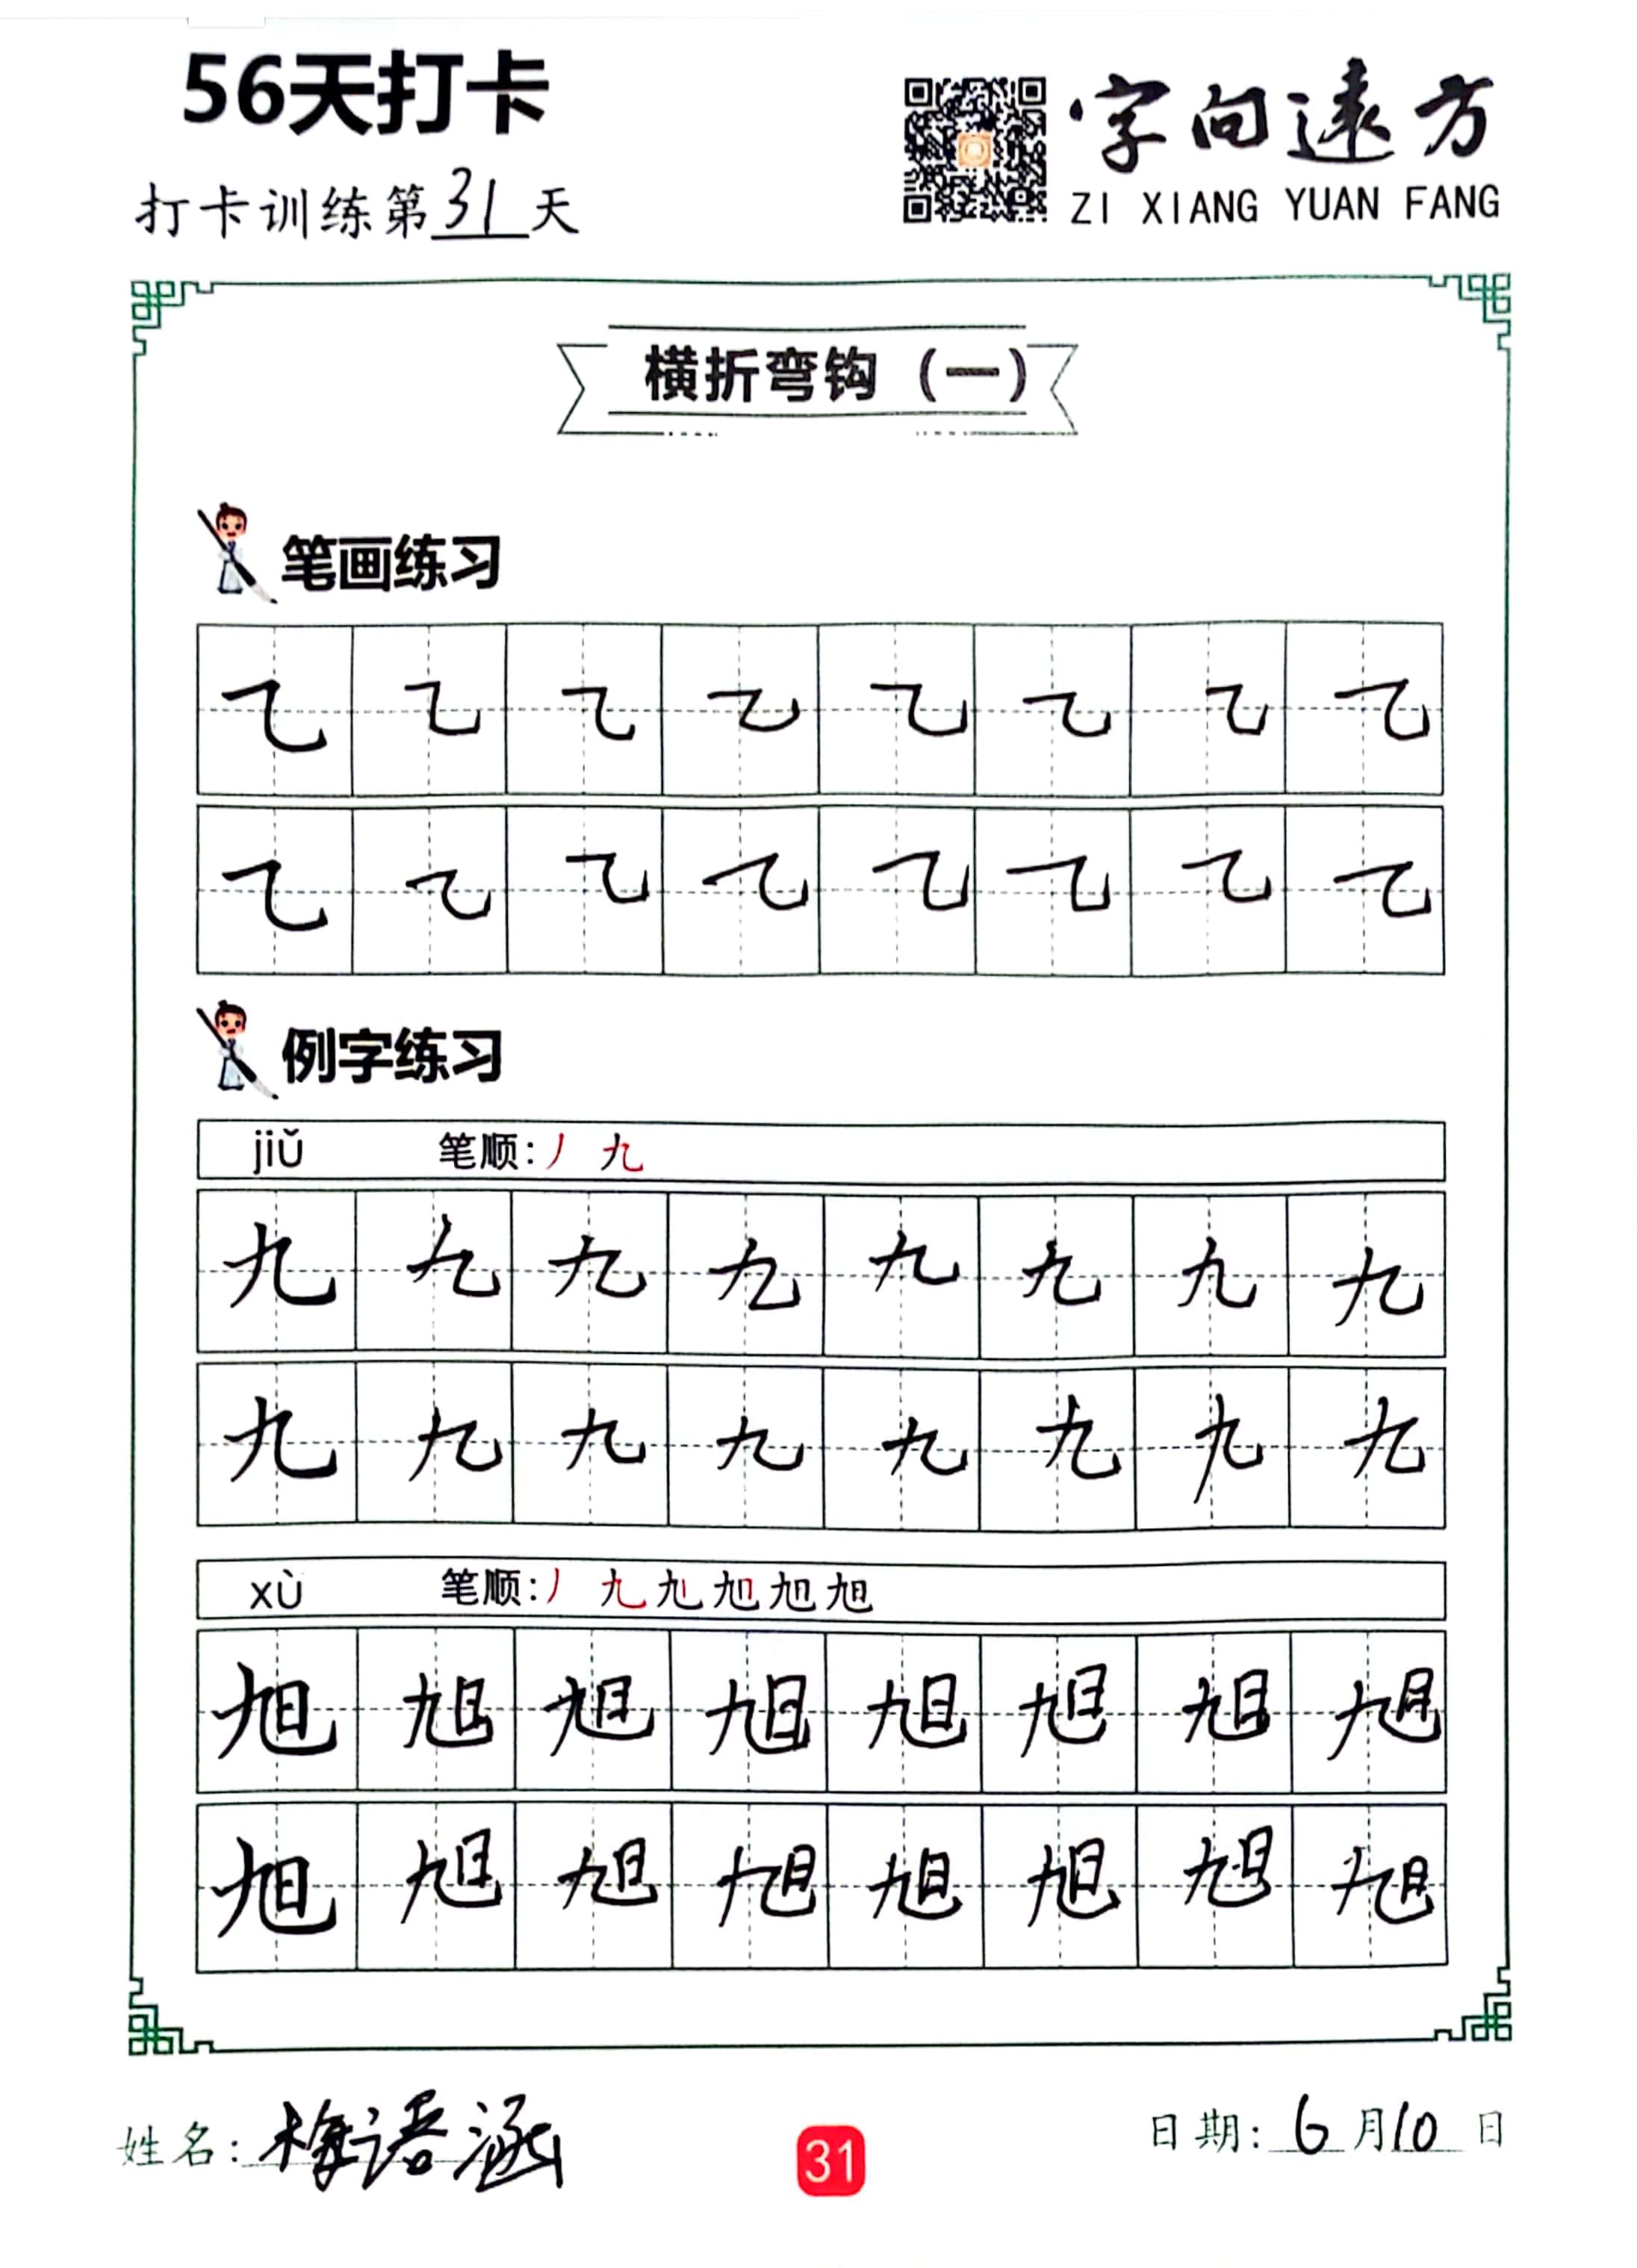 56天打卡
字向遠方
打卡训练第31天
ZI XIANG YUAN FANG
横折弯钩（一）
笔画练习
乙 乙 乙 乙 乙 乙 乙 乙
乙 乙 乙 乙 乙 乙 乙 乙
例字练习
jiǔ 笔顺：丿 九
九 九 九 九 九 九 九 九
九 九 九 九 九 九 九 九
xù 笔顺：丿 九 旭 旭 旭
旭 旭 旭 旭 旭 旭 旭 旭
旭 旭 旭 旭 旭 旭 旭 旭
姓名：梅语涵
31
日期：6月10日